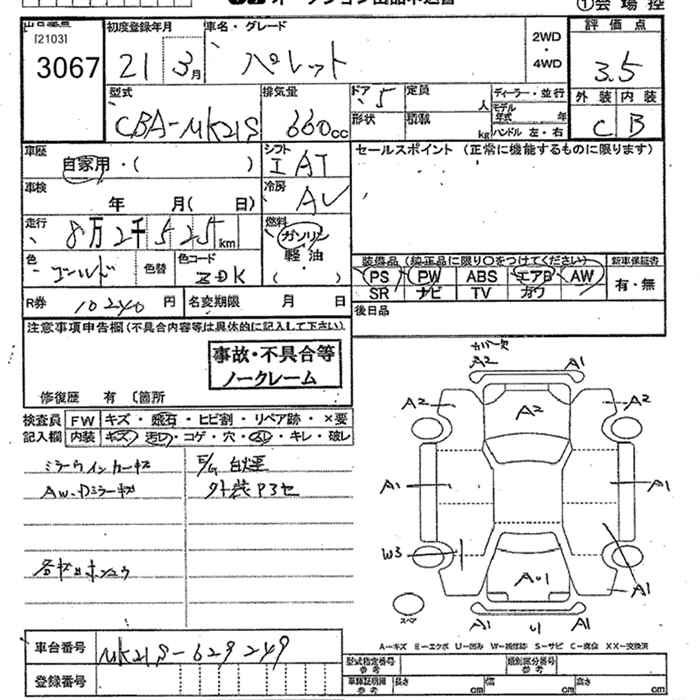 ①会場控
出品番号 初度登録年月 車名・グレード 2WD・4WD 評価点
[2103]
3067 21年 3月 パレット 3.5
型式 排気量 ドア 5 定員 人 ディーラー・並行 外装 内装
CBA-MK21S 660cc 形状 積載 kg モデル年式 年 ハンドル 左・右 C B
車歴 自家用・( ) シフト IAT セールスポイント (正常に機能するものに限ります)
車検 年 月( 日) 冷房 AC
走行 8万2千525km 燃料 ガソリン
軽油
( )
色 ゴールド 色替 色コード ZDK
装備品 (純正品に限り○をつけてください) 新車保証書
PS PW ABS エアB AW 有・無
SR ナビ TV カワ
R券 10240円 名変期限 月 日 後日品
注意事項申告欄(不具合内容等は具体的に記入して下さい)
事故・不具合等
ノークレーム
修復歴 有 〔箇所
検査員 FW キズ・飛石・ヒビ割・リペア跡・×要
記入欄 内装 キズ・汚レ・コゲ・穴・スレ・キレ・破レ
ミラーウインカーキズ E/G 白煙
AW・Dミラーキズ 外装Pヨゴレ
A2 A1
A2 A2 A2
A1 A1
W3
A・U1 A1
スペア
A1 U1 A1
A-キズ E-エクボ U-凹み W-補修跡 S-サビ C-腐食 XX-交換済
車台番号 MK21S-629249
登録番号
型式指定番号 参考 類別区分番号 参考
車輌証明用 参考 長さ cm 幅 cm 高さ cm